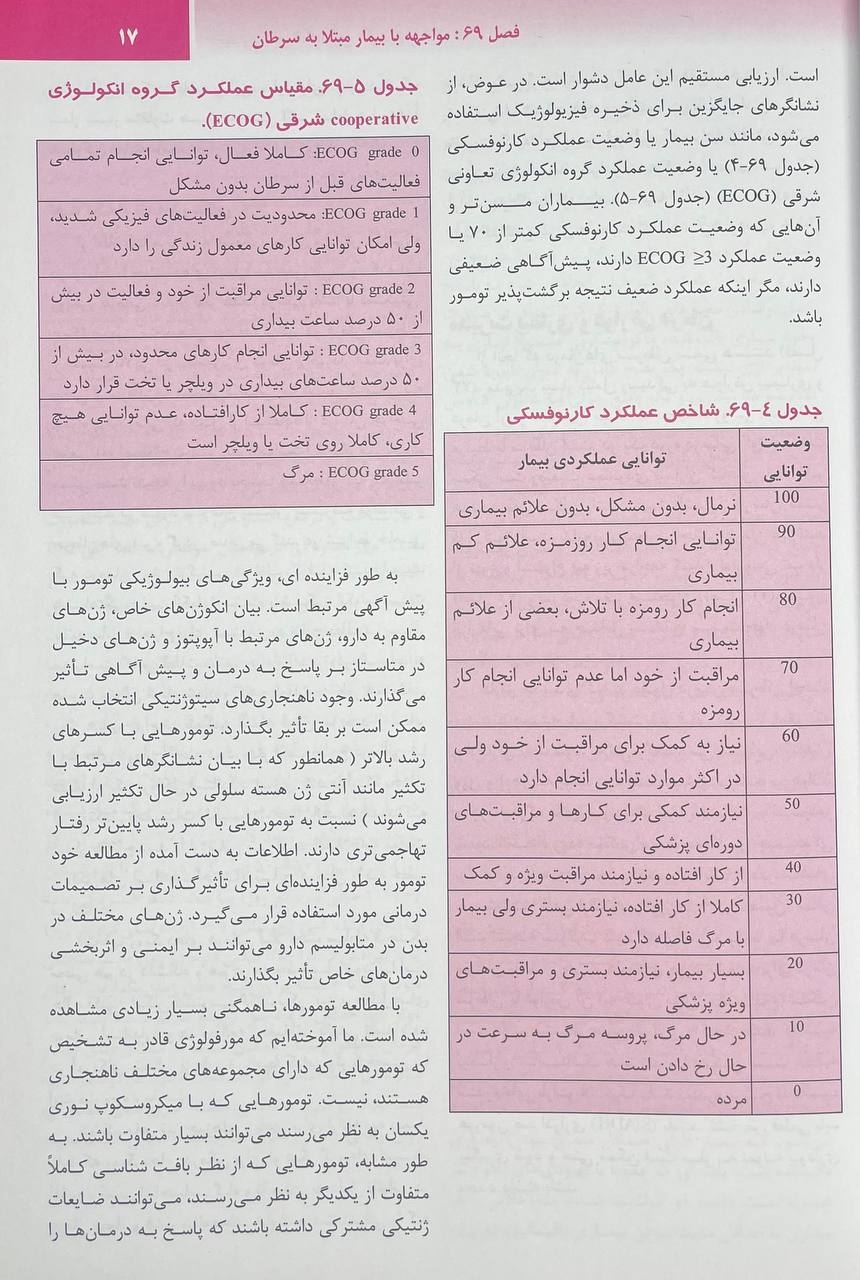 فصل ۶۹ : مواجهه با بیمار مبتلا به سرطان
۱۷
است. ارزیابی مستقیم این عامل دشوار است. در عوض، از
نشانگرهای جایگزین برای ذخیره فیزیولوژیک استفاده
می‌شود، مانند سن بیمار یا وضعیت عملکرد کارنوفسکی
(جدول ۶۹-۴) یا وضعیت عملکرد گروه انکولوژی تعاونی
شرقی (ECOG) (جدول ۶۹-۵). بیماران مسن‌تر و
آن‌هایی که وضعیت عملکرد کارنوفسکی کمتر از ۷۰ یا
وضعیت عملکرد ECOG ≥3 دارند، پیش‌آگاهی ضعیفی
دارند، مگر اینکه عملکرد ضعیف نتیجه برگشت‌پذیر تومور
باشد.
جدول ۴-۶۹. شاخص عملکرد کارنوفسکی
وضعیت
توانایی
توانایی عملکردی بیمار
100
نرمال، بدون مشکل، بدون علائم بیماری
90
توانایی انجام کار روزمزه، علائم کم
بیماری
80
انجام کار رومزه با تلاش، بعضی از علائم
بیماری
70
مراقبت از خود اما عدم توانایی انجام کار
رومزه
60
نیاز به کمک برای مراقبت از خود ولی
در اکثر موارد توانایی انجام دارد
50
نیازمند کمکی برای کارها و مراقبت‌های
دوره‌ای پزشکی
40
از کار افتاده و نیازمند مراقبت ویژه و کمک
30
کاملا از کار افتاده، نیازمند بستری ولی بیمار
با مرگ فاصله دارد
20
بسیار بیمار، نیازمند بستری و مراقبت‌های
ویژه پزشکی
10
در حال مرگ، پروسه مرگ به سرعت در
حال رخ دادن است
0
مرده
جدول ۵-۶۹. مقیاس عملکرد گروه انکولوژی
cooperative شرقی (ECOG).
ECOG grade 0: کاملا فعال، توانایی انجام تمامی
فعالیت‌های قبل از سرطان بدون مشکل
ECOG grade 1: محدودیت در فعالیت‌های فیزیکی شدید،
ولی امکان توانایی کارهای معمول زندگی را دارد
ECOG grade 2 : توانایی مراقبت از خود و فعالیت در بیش
از ۵۰ درصد ساعت بیداری
ECOG grade 3 : توانایی انجام کارهای محدود، در بیش از
۵۰ درصد ساعت‌های بیداری در ویلچر یا تخت قرار دارد
ECOG grade 4 : کاملا از کارافتاده، عدم توانایی هیچ
کاری، کاملا روی تخت یا ویلچر است
ECOG grade 5 : مرگ
به طور فزاینده ای، ویژگی‌های بیولوژیکی تومور با
پیش آگهی مرتبط است. بیان انکوژن‌های خاص، ژن‌های
مقاوم به دارو، ژن‌های مرتبط با آپوپتوز و ژن‌های دخیل
در متاستاز بر پاسخ به درمان و پیش آگاهی تأثیر
می‌گذارند. وجود ناهنجاری‌های سیتوژنتیکی انتخاب شده
ممکن است بر بقا تأثیر بگذارد. تومورهایی با کسرهای
رشد بالاتر ( همانطور که با بیان نشانگرهای مرتبط با
تکثیر مانند آنتی ژن هسته سلولی در حال تکثیر ارزیابی
می‌شوند ) نسبت به تومورهایی با کسر رشد پایین‌تر رفتار
تهاجمی‌تری دارند. اطلاعات به دست آمده از مطالعه خود
تومور به طور فزاینده‌ای برای تأثیرگذاری بر تصمیمات
درمانی مورد استفاده قرار می‌گیرد. ژن‌های مختلف در
بدن در متابولیسم دارو می‌توانند بر ایمنی و اثربخشی
درمان‌های خاص تأثیر بگذارند.
با مطالعه تومورها، ناهمگنی بسیار زیادی مشاهده
شده است. ما آموخته‌ایم که مورفولوژی قادر به تشخیص
که تومورهایی که دارای مجموعه‌های مختلف ناهنجاری
هستند، نیست. تومورهایی که با میکروسکوپ نوری
یکسان به نظر می‌رسند می‌توانند بسیار متفاوت باشند. به
طور مشابه، تومورهایی که از نظر بافت شناسی کاملاً
متفاوت از یکدیگر به نظر می‌رسند، می‌توانند ضایعات
ژنتیکی مشترکی داشته باشند که پاسخ به درمان‌ها را